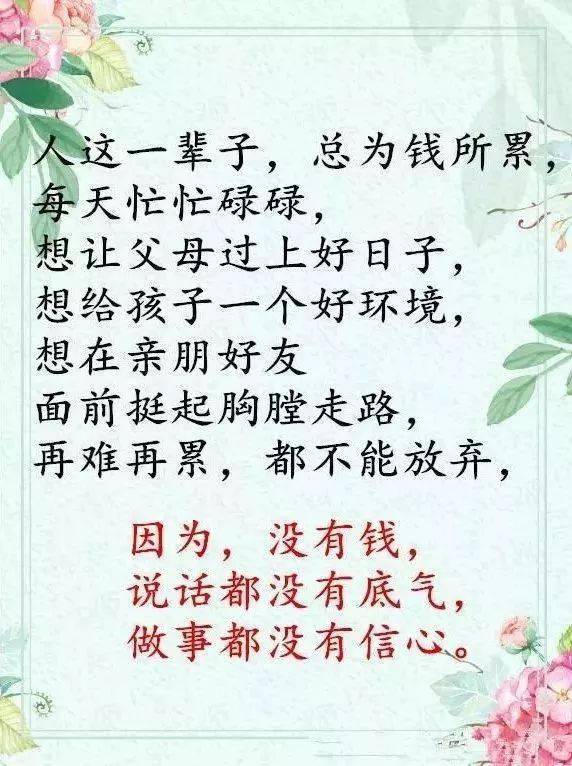 人这一辈子，总为钱所累，
每天忙忙碌碌，
想让父母过上好日子，
想给孩子一个好环境，
想在亲朋好友
面前挺起胸膛走路，
再难再累，都不能放弃，
因为，没有钱，
说话都没有底气，
做事都没有信心。